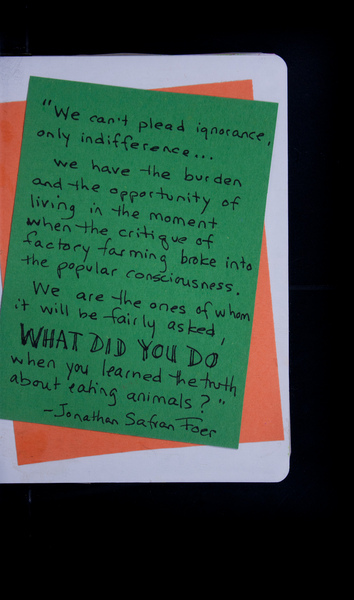 "We can't plead ignorance,
only indifference...
we have the burden
and the opportunity of
living in the moment
when the critique of
factory farming broke into
the popular consciousness.
We are the ones of whom
it will be fairly asked,
WHAT DID YOU DO
when you learned the truth
about eating animals?"
-Jonathan Safran Foer